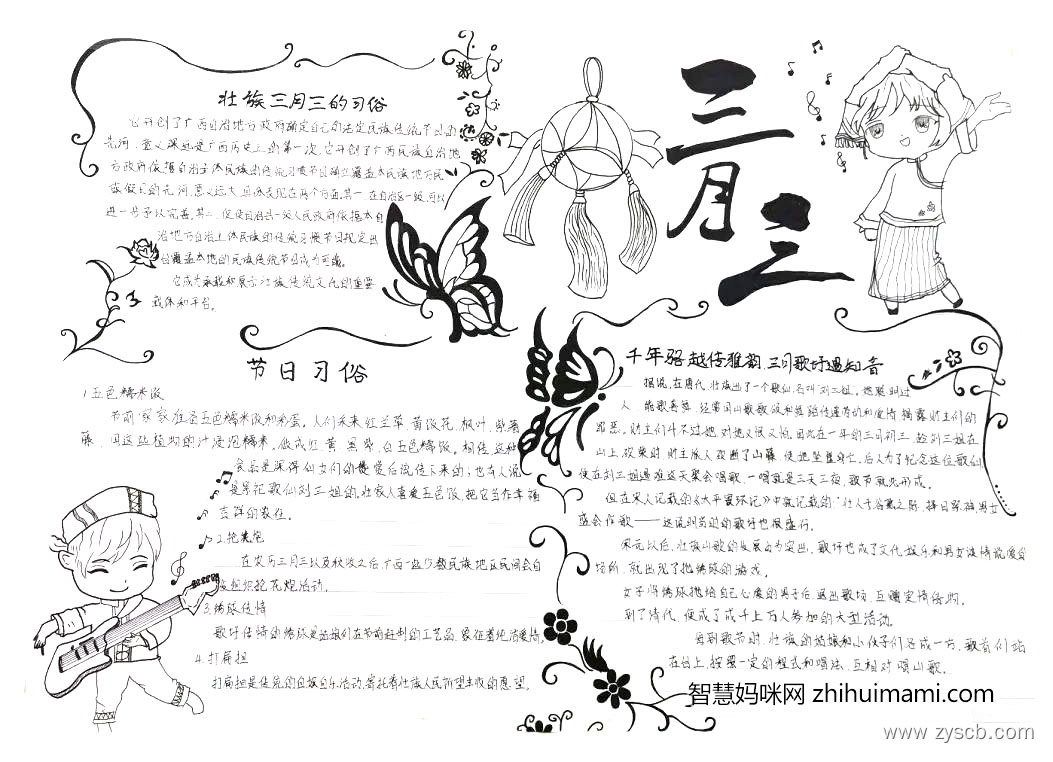 三月三
壮族三月三的习俗
它开创了广西自治地方政府确定自己的法定民族传统节日的
先河,意义深远是广西历史上的第一次,它开创了广西民族自治地
方政府依据自治主体民族的传统习惯节日确立覆盖本民族地方民
族假日的先河,意义远大,具体表现在两个方面,其一,在自治区一级,可以
进一步予以完善,其二,促使自治县一级人民政府依据本自
治地方自治主体民族的传统习惯节日规定出
台覆盖本地的民族传统节日成为可能。
它成为承载和展示壮族传统文化的重要
载体和平台。
节日习俗
1.五色糯米饭
节前家家准备五色糯米饭和彩蛋。人们采来红兰草、黄饭花、枫叶、紫蕃
藤,用这些植物的汁浸泡糯米,做成红、黄、黑、紫、白五色糯饭。相传,这种
食品是深得仙女们的赞爱后流传下来的;也有人说
是祭祀歌仙刘三姐的,壮家人喜爱五色饭,把它当作幸福
吉祥的象征。
2.抢花炮
在农历三月三以及秋收之后,广西一些少数民族地区民间会自
发组织抢花炮活动。
3.绣球传情
歌圩传情的绣球是姑娘们在节前赶制的工艺品,象征着纯洁爱情。
4.打扁担
打扁担是传统的自娱自乐活动,寄托着壮族人民祈望丰收的愿望。
千年骆越传雅韵,三月歌圩遇知音
据说,在唐代,壮族出了一个歌仙,名叫刘三姐,她聪明过
人,能歌善舞,经常用山歌歌颂和赞陪传遗劳动和爱情,揭露财主们的
罪恶。财主们斗不过她,对她又恨又怕。因此在一年的三月初三,趁刘三姐在
山上砍柴时,财主派人砍断了山藤,使她坠崖身亡。后人为了纪念这位歌仙,
便在刘三姐遇难这天聚会唱歌,一唱就是三天三夜,歌节就此形成。
但在宋人记载的《太平寰环记》中就记载的:“壮人于谷熟之际,择日祭神,男女
盛会作歌——这说明当时的歌圩也很盛行。
宋元以后,壮族山歌的发展更为突出,歌圩也成了文化娱乐和男女谈情说爱的
场所,就出现了抛绣球的游戏。
女子将绣球抛给自己心爱的男子后,退出歌场,互赠定情信物。
到了清代,便成了成千上万人参加的大型活动。
每到歌节时,壮族的姑娘和小伙子们各成一方,歌首们站
在台上,按照一定的程式和唱法,互相对唱山歌。
智慧妈咪网 zhihuimami.com
www.zyscb.com